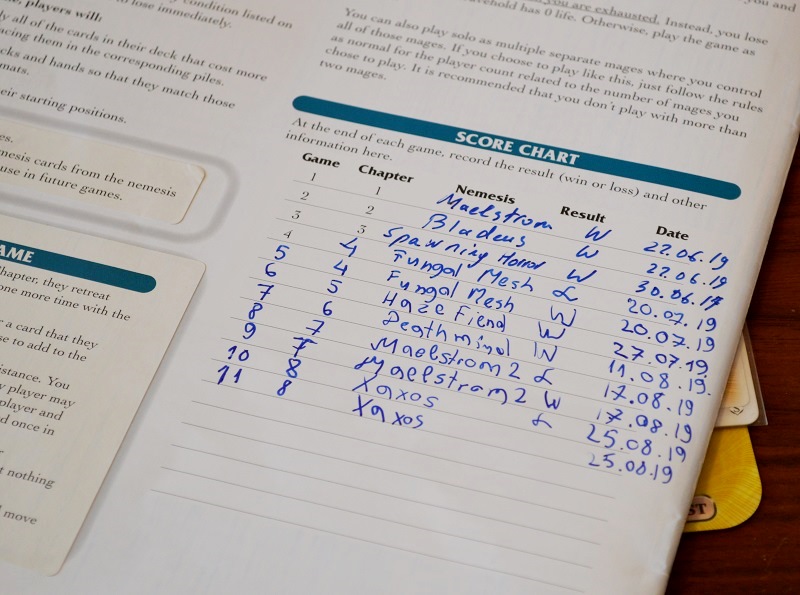 condition listed on
to lose immediately.
players will:
all of the cards in their deck that cost more
them in the corresponding piles.
and hands so that they match those
mats.
their starting positions.
nemesis cards from the nemesis
use in future games.
chapter, they retreat
one more time with the
or a card that they
se to add to the
istance. You
player may
player and
d once in
t nothing
move
you are exhausted. Instead, you lose
has 0 life. Otherwise, play the game as
You can also play solo as multiple separate mages where you control
all of those mages. If you choose to play like this, just follow the rules
as normal for the player count related to the number of mages you
chose to play. It is recommended that you don't play with more than
two mages.
SCORE CHART
At the end of each game, record the result (win or loss) and other
information here.
Game Chapter Nemesis Result Date
1 1 Maelstrom W 22.06.19
2 2 Bladeus W 22.06.19
3 3 Spawning Horror W 30.06.19
4 4 Fungal Mesh L 20.07.19
5 4 Fungal Mesh W 20.07.19
6 5 Haze Fiend W 27.07.19
7 6 Deathmind W 11.08.19.
8 7 Maelstrom 2 L 17.08.19
9 7 Maelstrom 2 W 17.08.19
10 8 Xaxos L 25.08.19
11 8 Xaxos 25.08.19